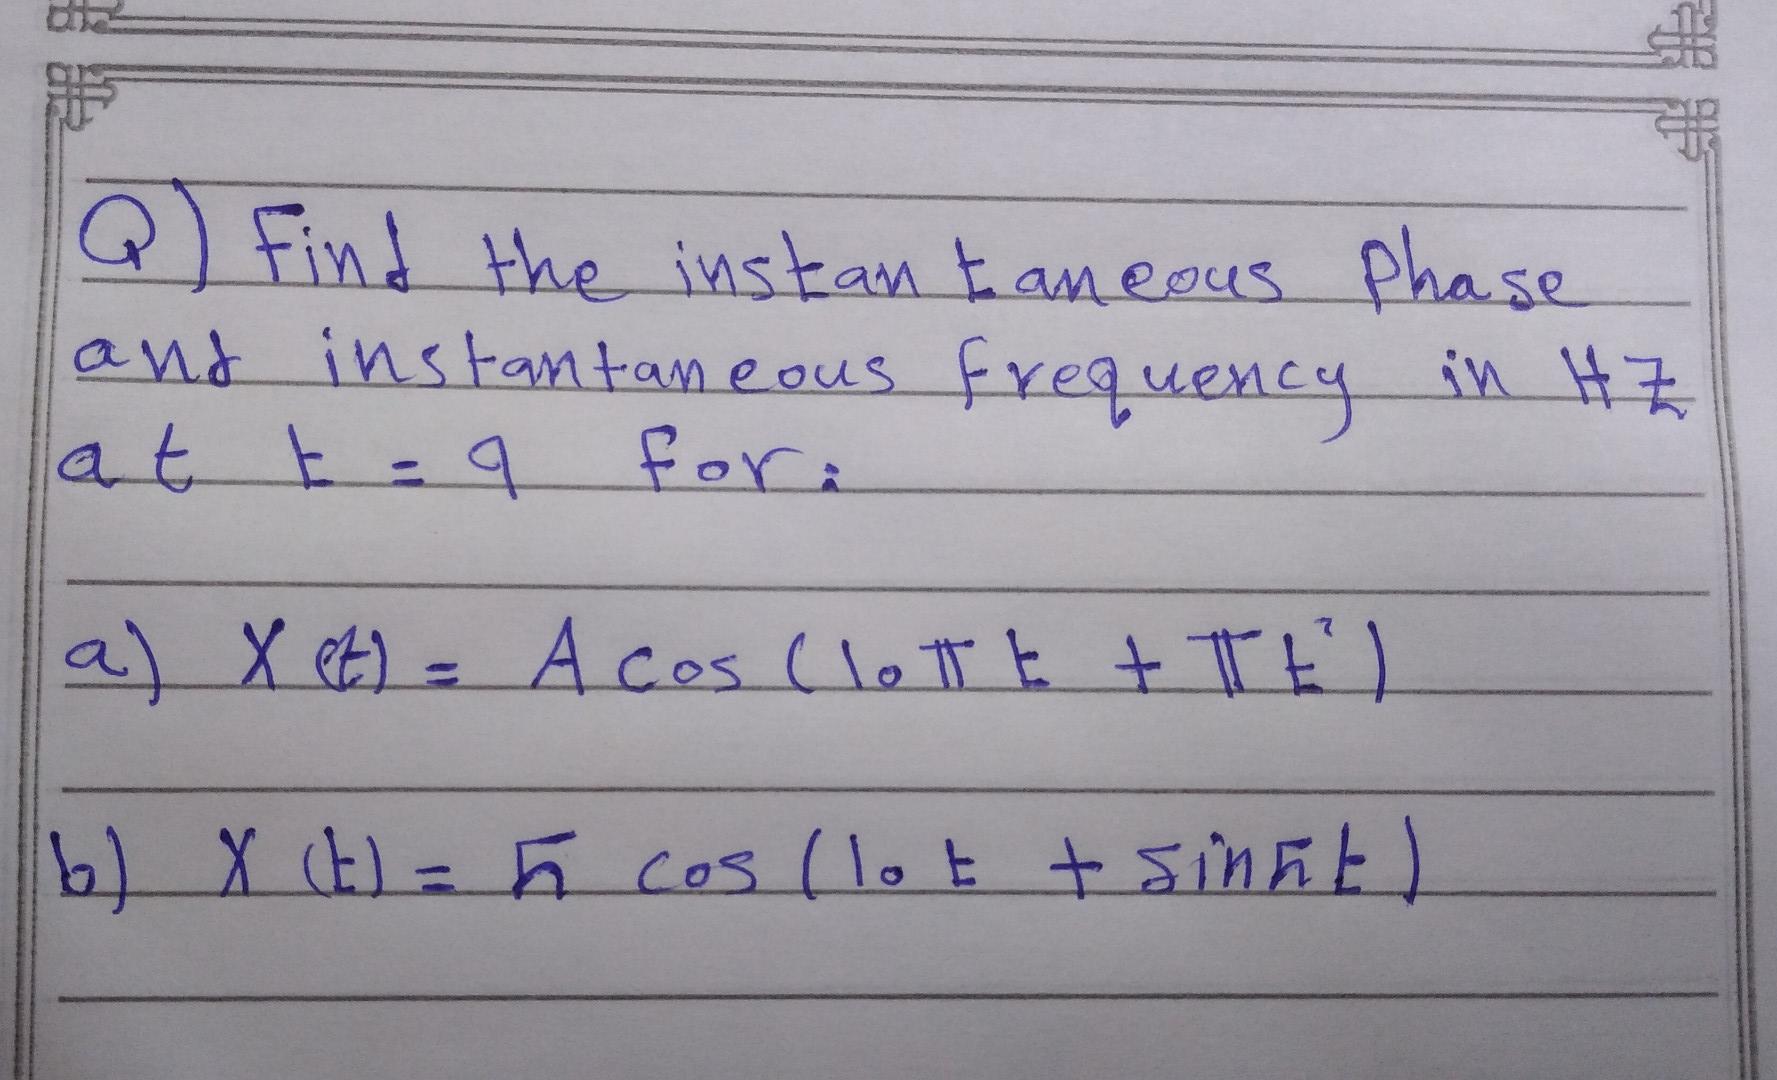 Q) Find the instantaneous Phase
and instantaneous frequency in HZ
at t = 9 for:
a) X(t) = A cos (10π t + π t²)
b) X (t) = 5 cos (10 t + sin5t)